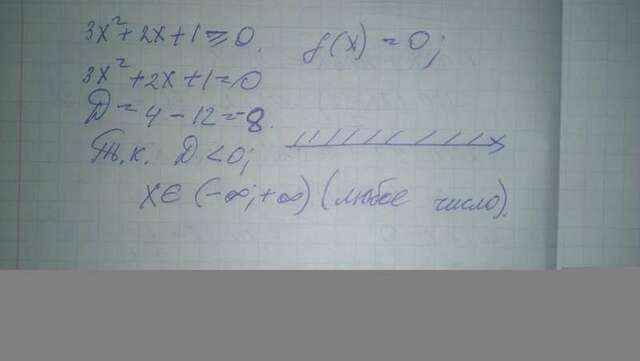 3x²+2x+1≥0. f(x)=0;
3x²+2x+1=0
D=4-12=-8.
Т.к. D<0;
x∈(-∞;+∞) (любое число).